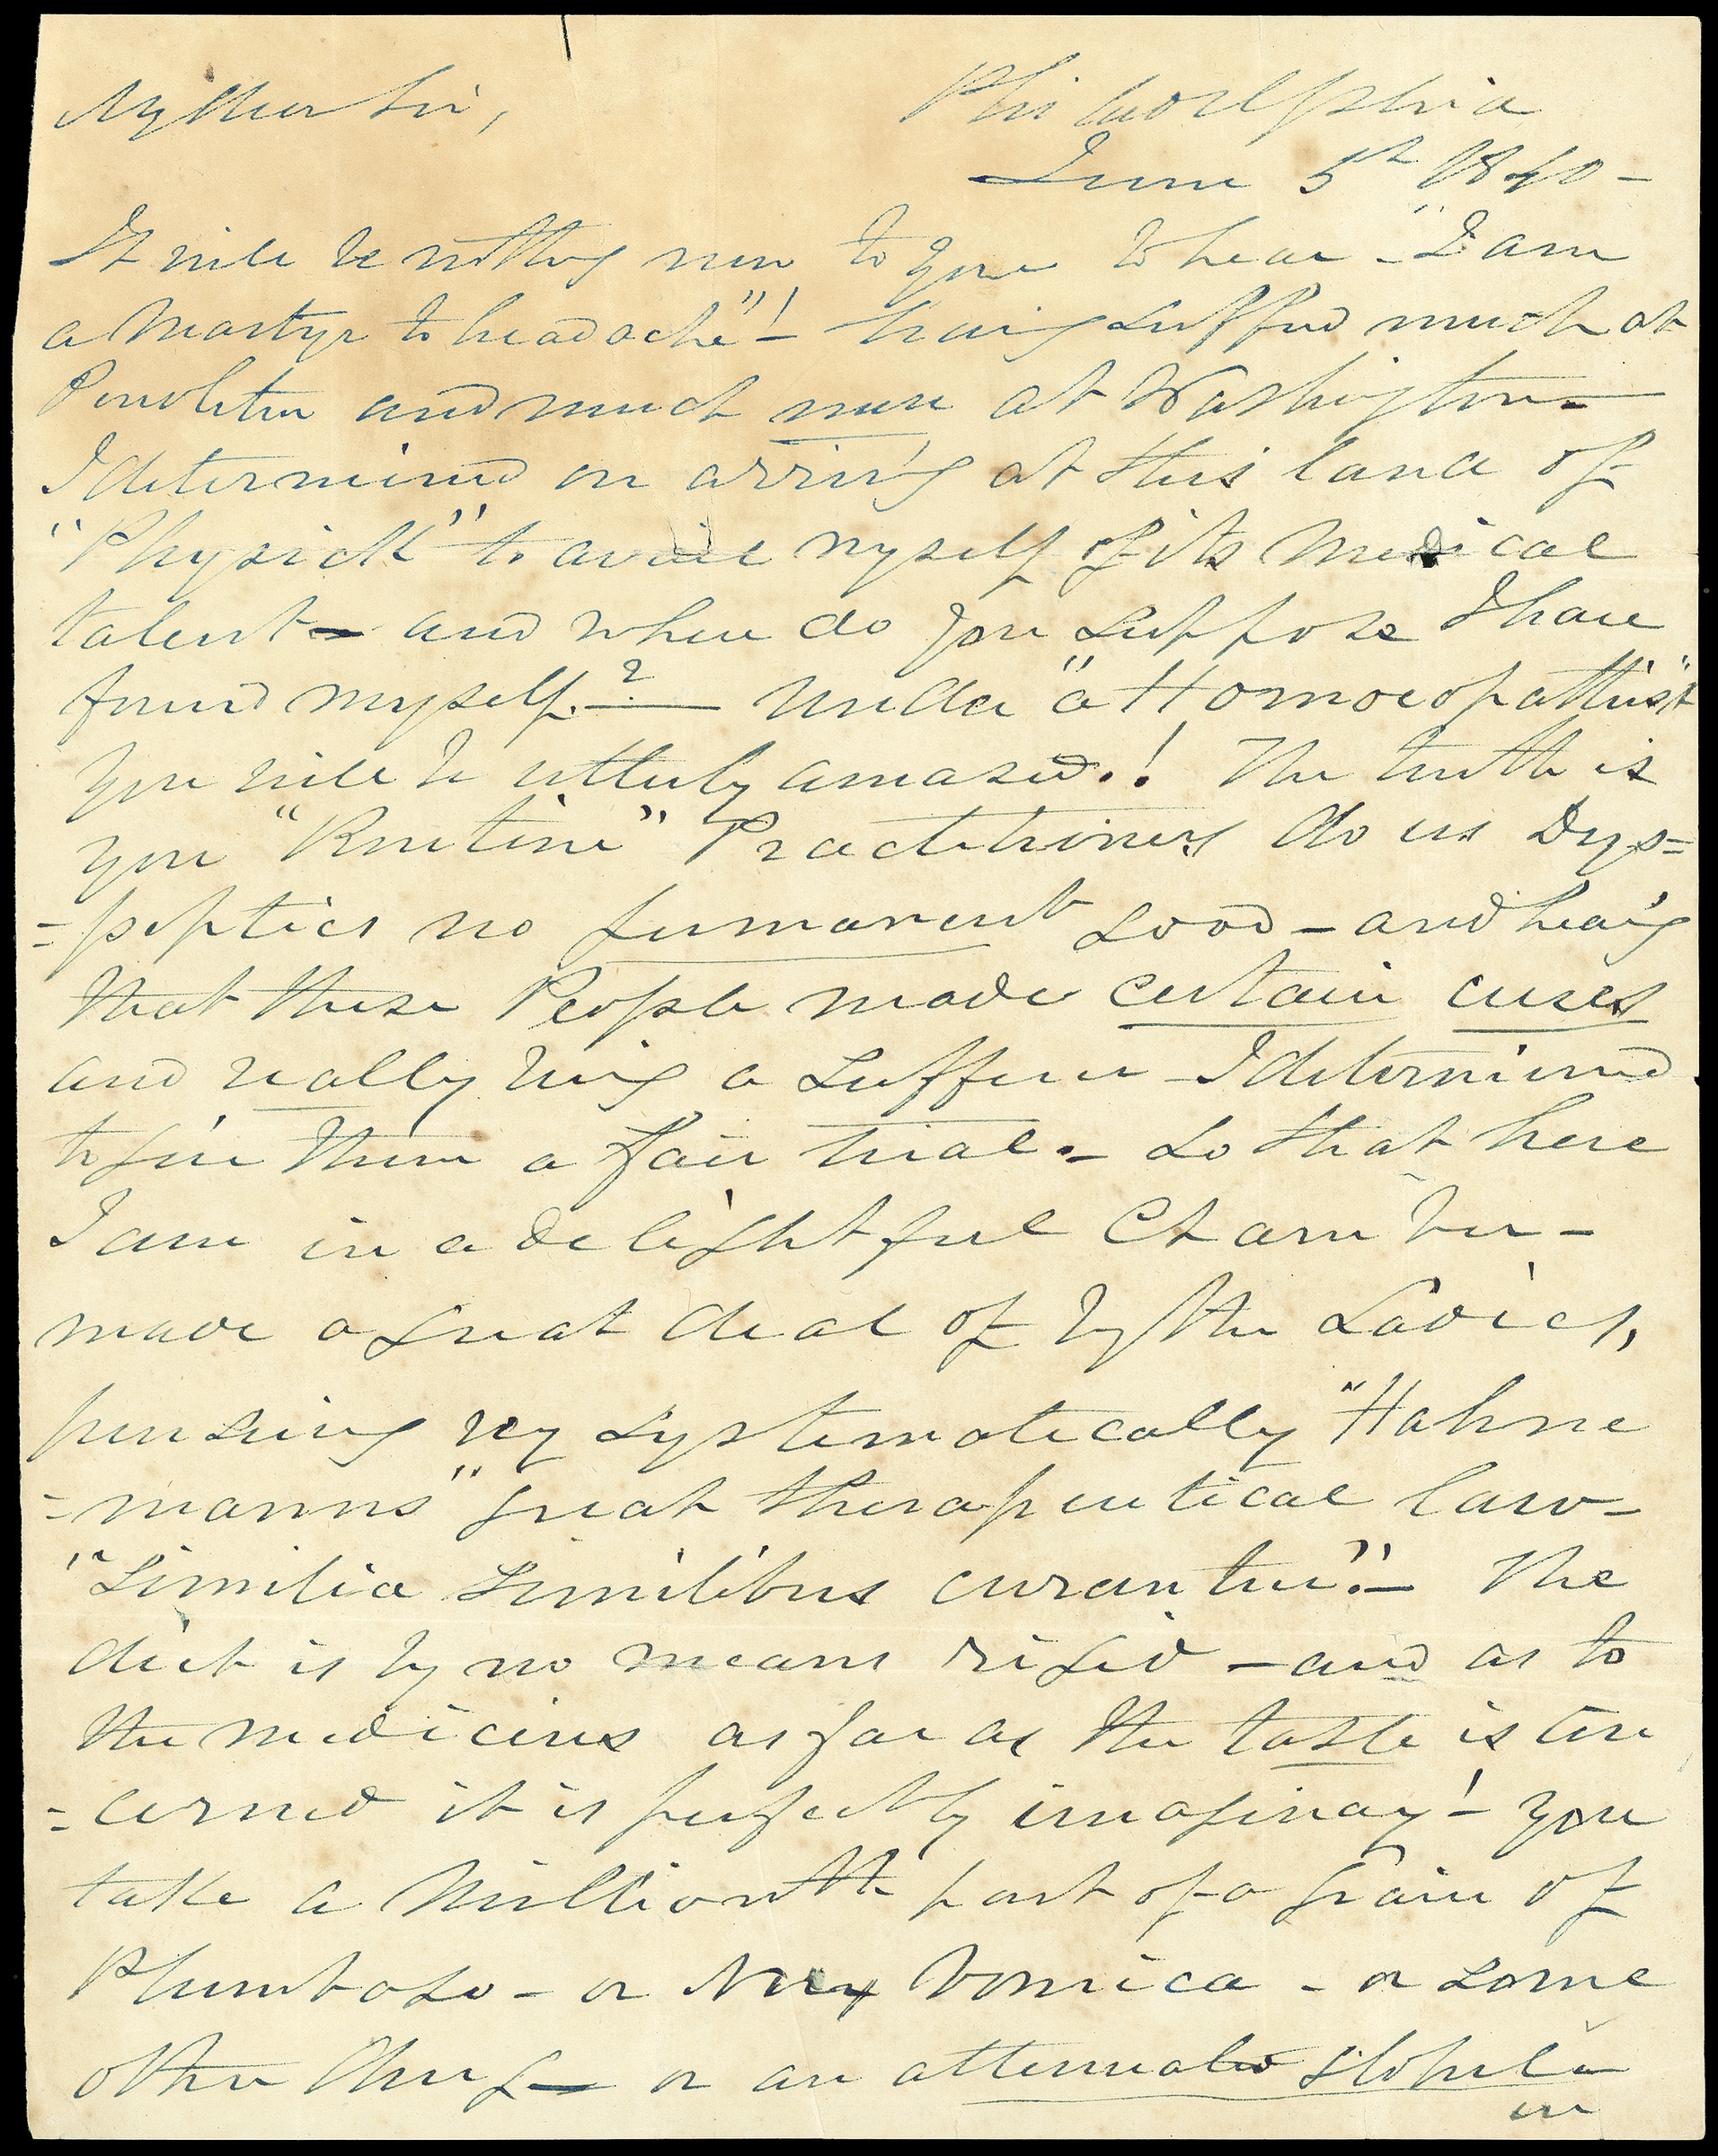 My dear Sir,
Philadelphia
June 5th 1840 -
It will be nothing new to you to hear - "I am
a Martyr to headache"! - having suffered much at
Pendleton and much more at Washington -
I determined on arriving at this land of
"Physick" to avail myself of its Medical
talent - and where do you suppose I have
found myself? - under "a Homoeopathist"
you will be utterly amazed.! The truth is
you "Routine" Practitioners do us Dys=
=peptics no permanent good - and hearing
that these People made certain cures
and really being a sufferer - I determined
to give them a fair trial. - So that here
I am in a delightful Chamber -
made a great deal of by the Ladies,
pursuing very systematically "Hahne
=manns" great therapeutical law -
"Similia Similibus curantur". - The
diet is by no means rigid - and as to
the medicines as far as the taste is con
=cerned it is perfectly imaginary! - you
take a Millionth part of a grain of
Plumbago - or Nux Vomica - or some
other thing - or an attenuated globule
in